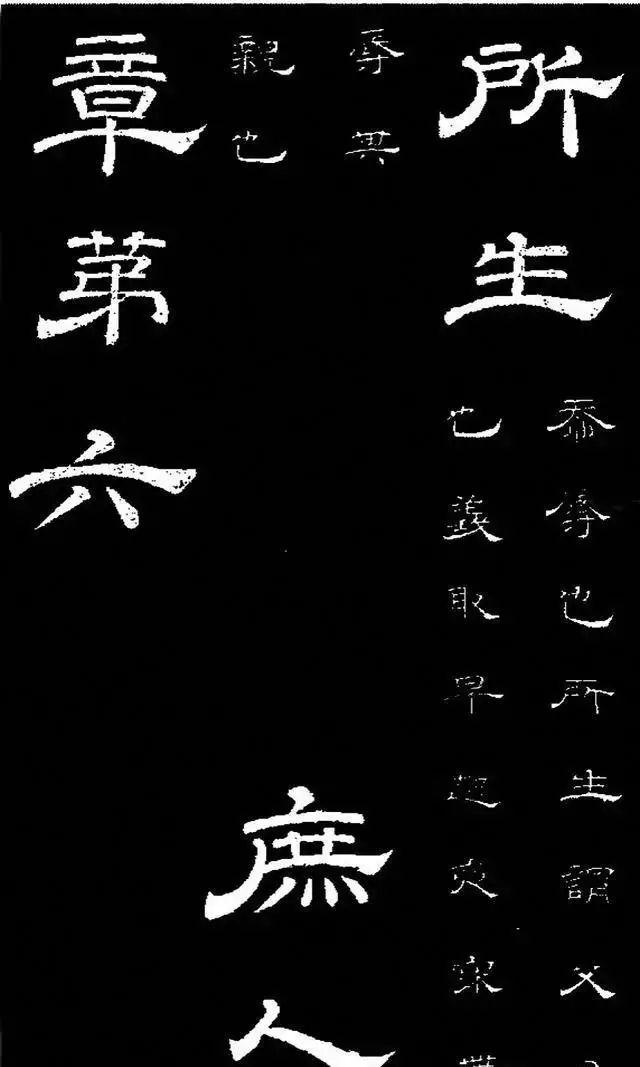 所生
忝辱也所生謂父
也義取早起夜寐
辱其
親也
庶人
章第六